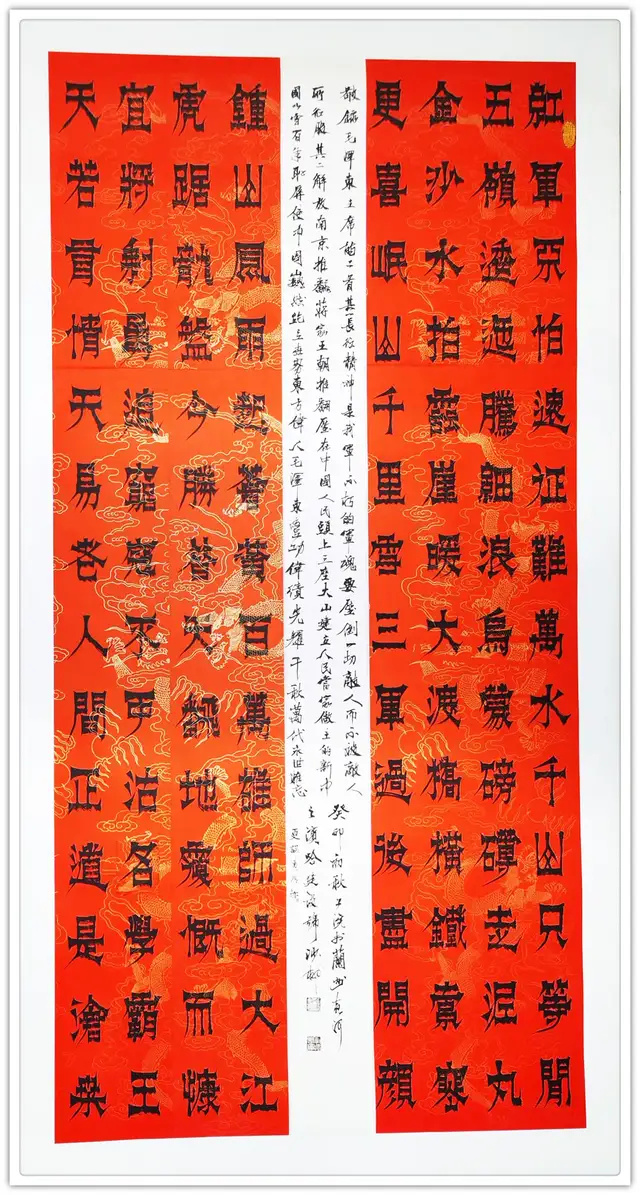 紅軍不怕遠征難萬水千山只等閒
五嶺逶迤騰細浪烏蒙磅礴走泥丸
金沙水拍雲崖暖大渡橋橫鐵索寒
更喜岷山千里雪三軍過後盡開顏
敬錄毛澤東主席的二首其一長征精神是我軍不朽的軍魂要壓倒一切敵人而不被敵人
所征服其二解放南京推翻蔣家王朝推翻壓在中國人民頭上三座大山建立人民當家做主的新中
國百年恥辱使中國屹立世界東方偉人毛澤東豐功偉績光耀千秋萬代永世難忘
癸卯初秋書蘭州黃河
之濱
鍾山風雨起蒼黃百萬雄師過大江
虎踞龍盤今勝昔天翻地覆慨而慷
宜將剩勇追窮寇不可沽名學霸王
天若有情天亦老人間正道是滄桑